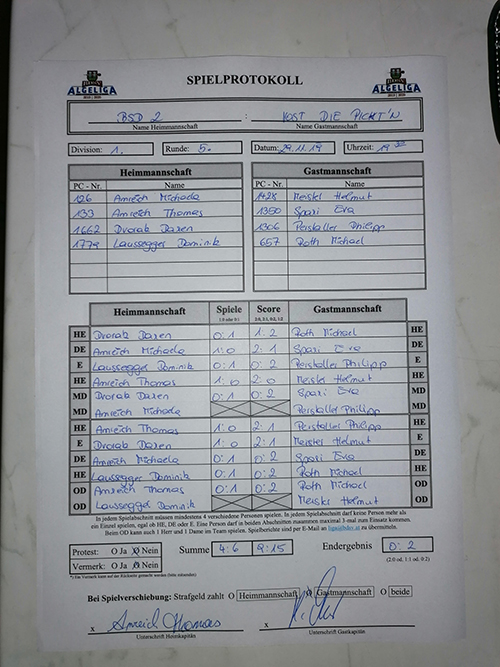 ALGELIGA SPIELPROTOKOLL ALGELIGA
BSD 2 : KOST DIE PICKT'N
Name Heimmannschaft Name Gastmannschaft
Division: 1. Runde: 5. Datum: 29.11.19 Uhrzeit: 19
Heimmannschaft Gastmannschaft
PC - Nr. Name PC - Nr. Name
126 Amreich Michaela 1428 Meistel Helmut
133 Amreich Thomas 1350 Spari Eva
1662 Dvorak Daren 1306 Peistaller Philipp
1779 Laussegger Dominik 657 Roth Michael
Heimmannschaft Spiele Score Gastmannschaft
1:0 oder 0:1 2:0, 2:1, 0:2, 1:2
HE Dvorak Daren 0:1 1:2 Roth Michael HE
DE Amreich Michaela 1:0 2:1 Spari Eva DE
E Laussegger Dominik 0:1 0:2 Peistaller Philipp E
HE Amreich Thomas 1:0 2:0 Meistel Helmut HE
MD Dvorak Daren 0:1 0:2 Spari Eva MD
MD Amreich Michaela Peistaller Philipp MD
HE Amreich Thomas 1:0 2:1 Peistaller Philipp HE
E Dvorak Daren 1:0 2:1 Meistel Helmut E
DE Amreich Michaela 0:1 0:2 Spari Eva DE
HE Laussegger Dominik 0:1 0:2 Roth Michael HE
OD Amreich Thomas 0:1 0:2 Roth Michael OD
OD Laussegger Dominik Meistel Helmut OD
In jedem Spielabschnitt müssen mindestens 4 verschiedene Personen spielen. In jedem Spielabschnitt darf keine Person mehr als
ein Einzel spielen, egal ob HE, DE oder E. Eine Person darf in beiden Abschnitten zusammen maximal 3-mal zum Einsatz kommen.
Beim OD kann auch 1 Herr und 1 Dame im Team spielen. Spielberichte sind per E-Mail an liga@bdev.at zu übermitteln.
Protest: O Ja O Nein Summe 4:6 9:15 Endergebnis 0:2
Vermerk: O Ja O Nein (2:0 od. 1:1 od. 0:2)
*) Ein Vermerk kann auf der Rückseite gemacht werden (bitte ankreuzen)
Bei Spielverschiebung: Strafgeld zahlt O Heimmannschaft O Gastmannschaft O beide
x Amreich Thomas x
Unterschrift Heimkapitän Unterschrift Gastkapitän